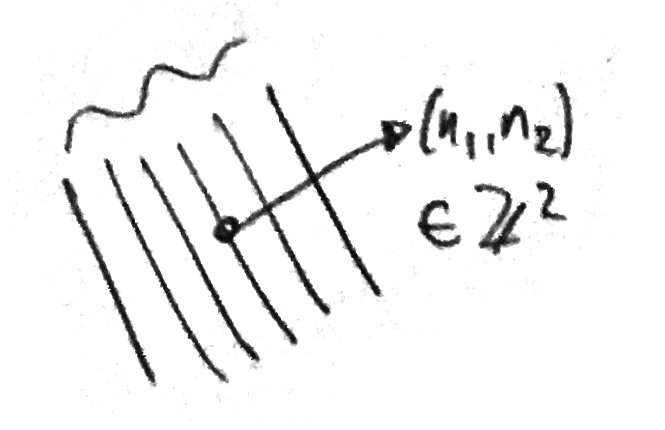 (n₁, n₂)
∈ ℤ²